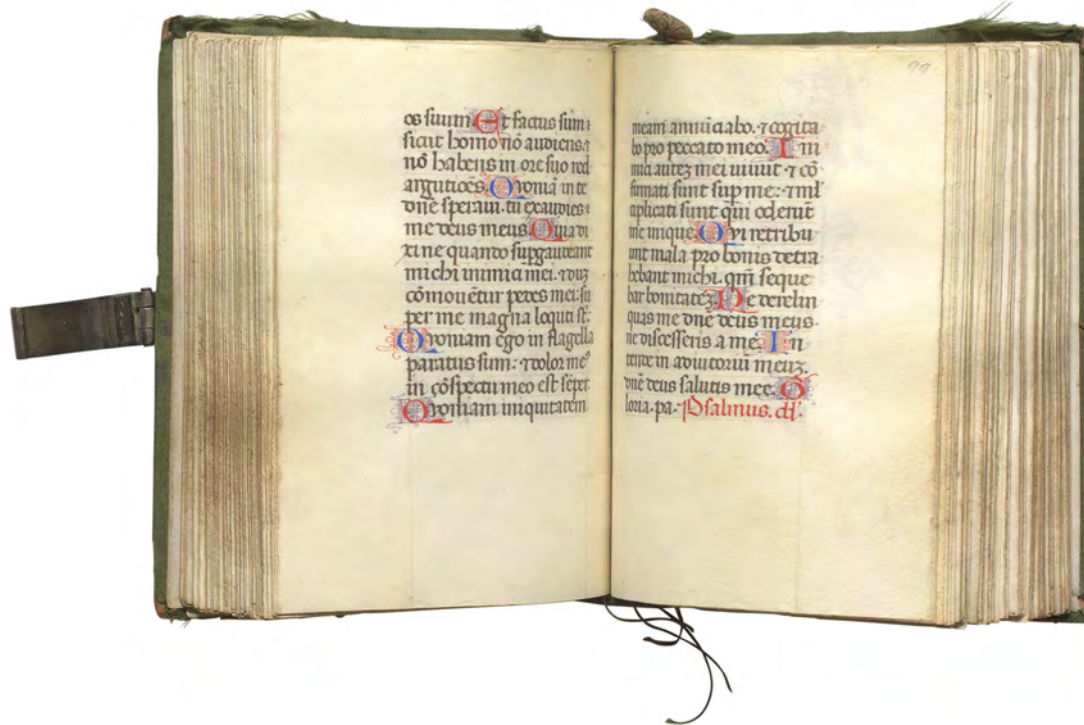 os suum. Et factus sum
sicut homo nō audiens. ⁊
nō habens in ore suo red
argutiōes. Qvoniā in te
dnē speraui. tu exaudies
me deus meus. Quia di
xi ne quando supgaudeant
michi inimici mei. ⁊ duz
cōmouētur pedes mei: su
per me magna locuti st̄.
Qvoniam ego in flagella
paratus sum: ⁊ dolor meꝰ
in cōspectu meo est sēper.
Qvoniam iniquitatem
99
meam annūciabo. ⁊ cogita
bo pro peccato meo. Ini
mici autez mei uiuūt ⁊ cō
firmati sunt sup me: ⁊ ml̄
tiplicati sunt qui oderūt
me inique. Qvi retribu
unt mala pro bonis detra
hebant michi. qm̄ seque
bar bonitatez. Ne derelin
quas me dnē deus meus.
ne discesseris a me. In
tende in adiutoriū meuz.
dnē deus salutis mee. G
loria. pa. Psalmus.